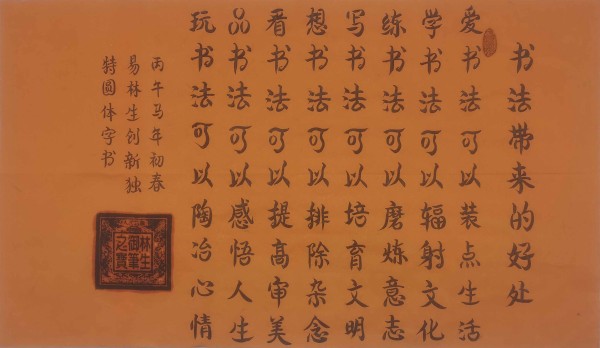 书法带来的好处
爱书法可以装点生活
学书法可以辐射文化
练书法可以磨炼意志
写书法可以培育文明
想书法可以排除杂念
看书法可以提高审美
品书法可以感悟人生
玩书法可以陶冶心情
丙午马年初春
易林生创新独
特圆体字书
林生
御笔
之宝